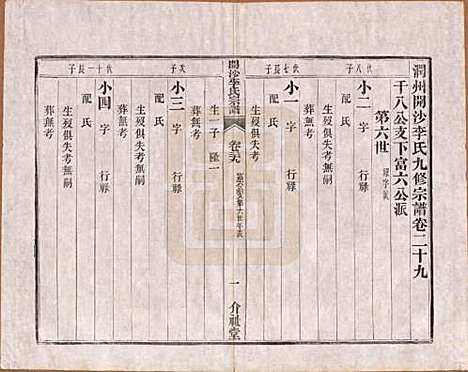 潤州開沙李氏九修宗譜卷二十九
千八公支下富六公派
第六世 祿字派
伏八子
小二 字 行祿
配 氏
生歿俱失考無嗣
葬無考
伏七長子
小一 字 行祿
配 氏
生歿俱失考
葬無考
生一子 隆一
開沙李氏宗譜
卷二十九
一 介祉堂
次子
小三 字 行祿
配 氏
生歿俱失考無嗣
葬無考
伏十一長子
小四 字 行祿
配 氏
生歿俱失考無嗣
葬無考